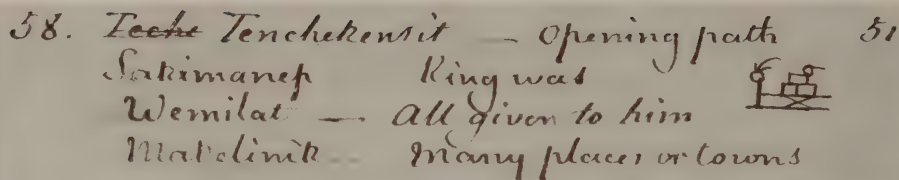 58. Teche Tenchekensit — Opening path 51
Sakimanep King was
Wemilat — All given to him
Makelinik -- Many places or towns